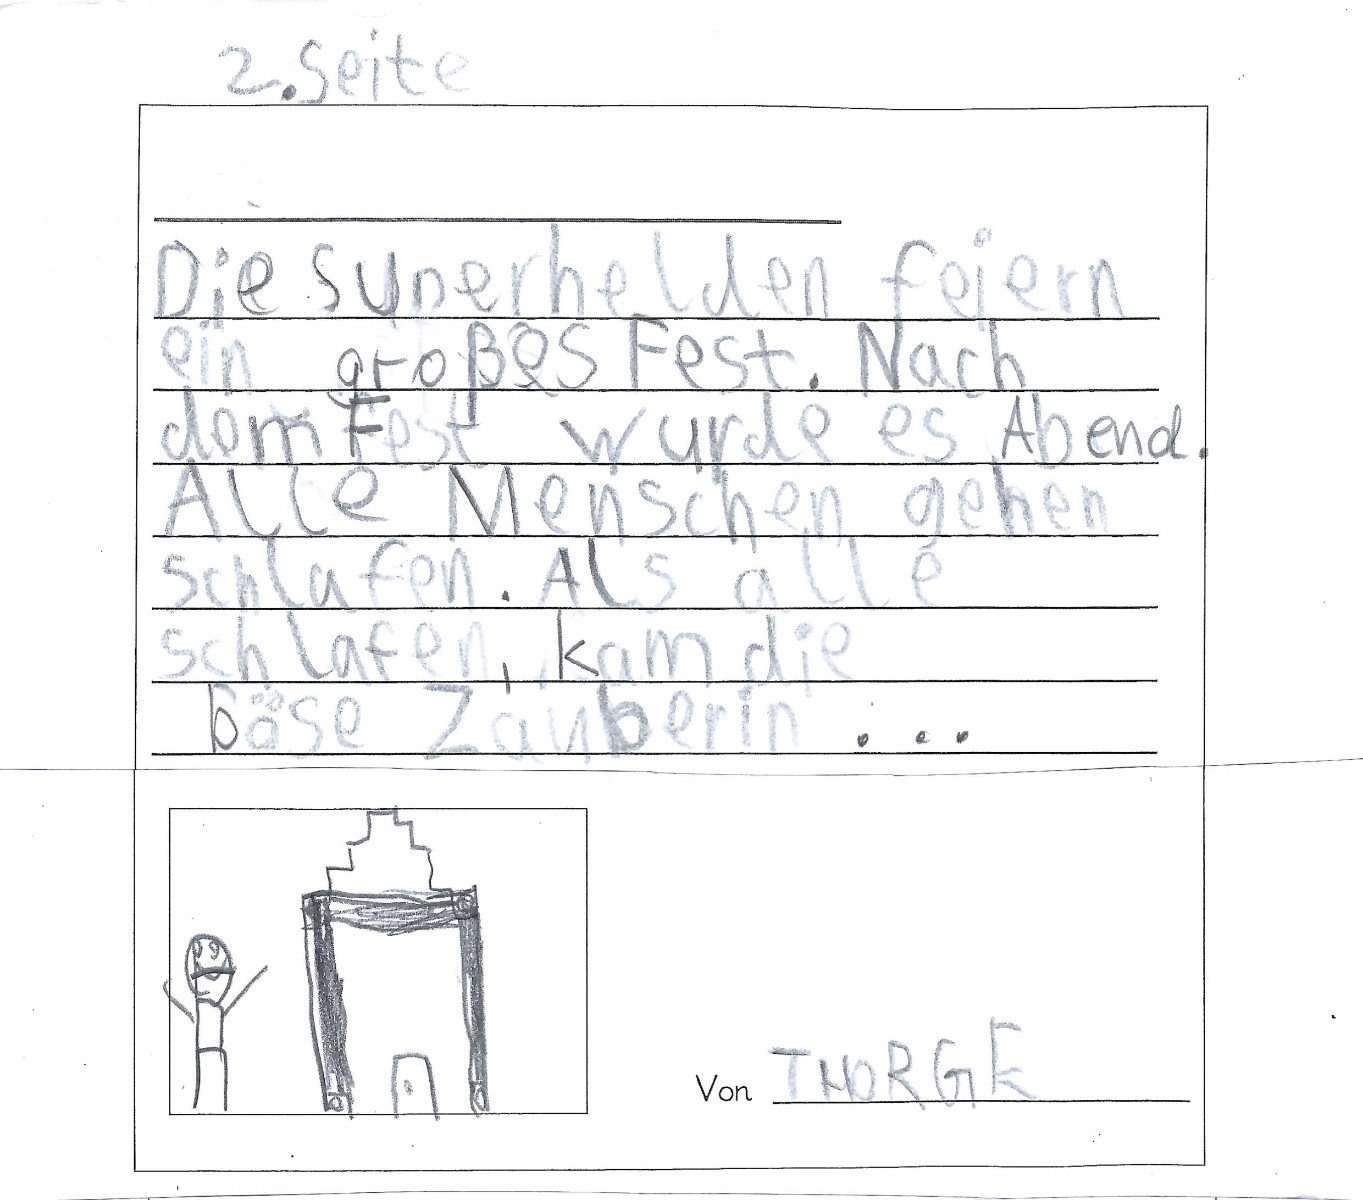 2. Seite
Die Superhelden feiern
ein großes Fest. Nach
dem Fest wurde es Abend.
Alle Menschen gehen
schlafen. Als alle
schlafen, kam die
böse Zauberin ...
Von THORGE